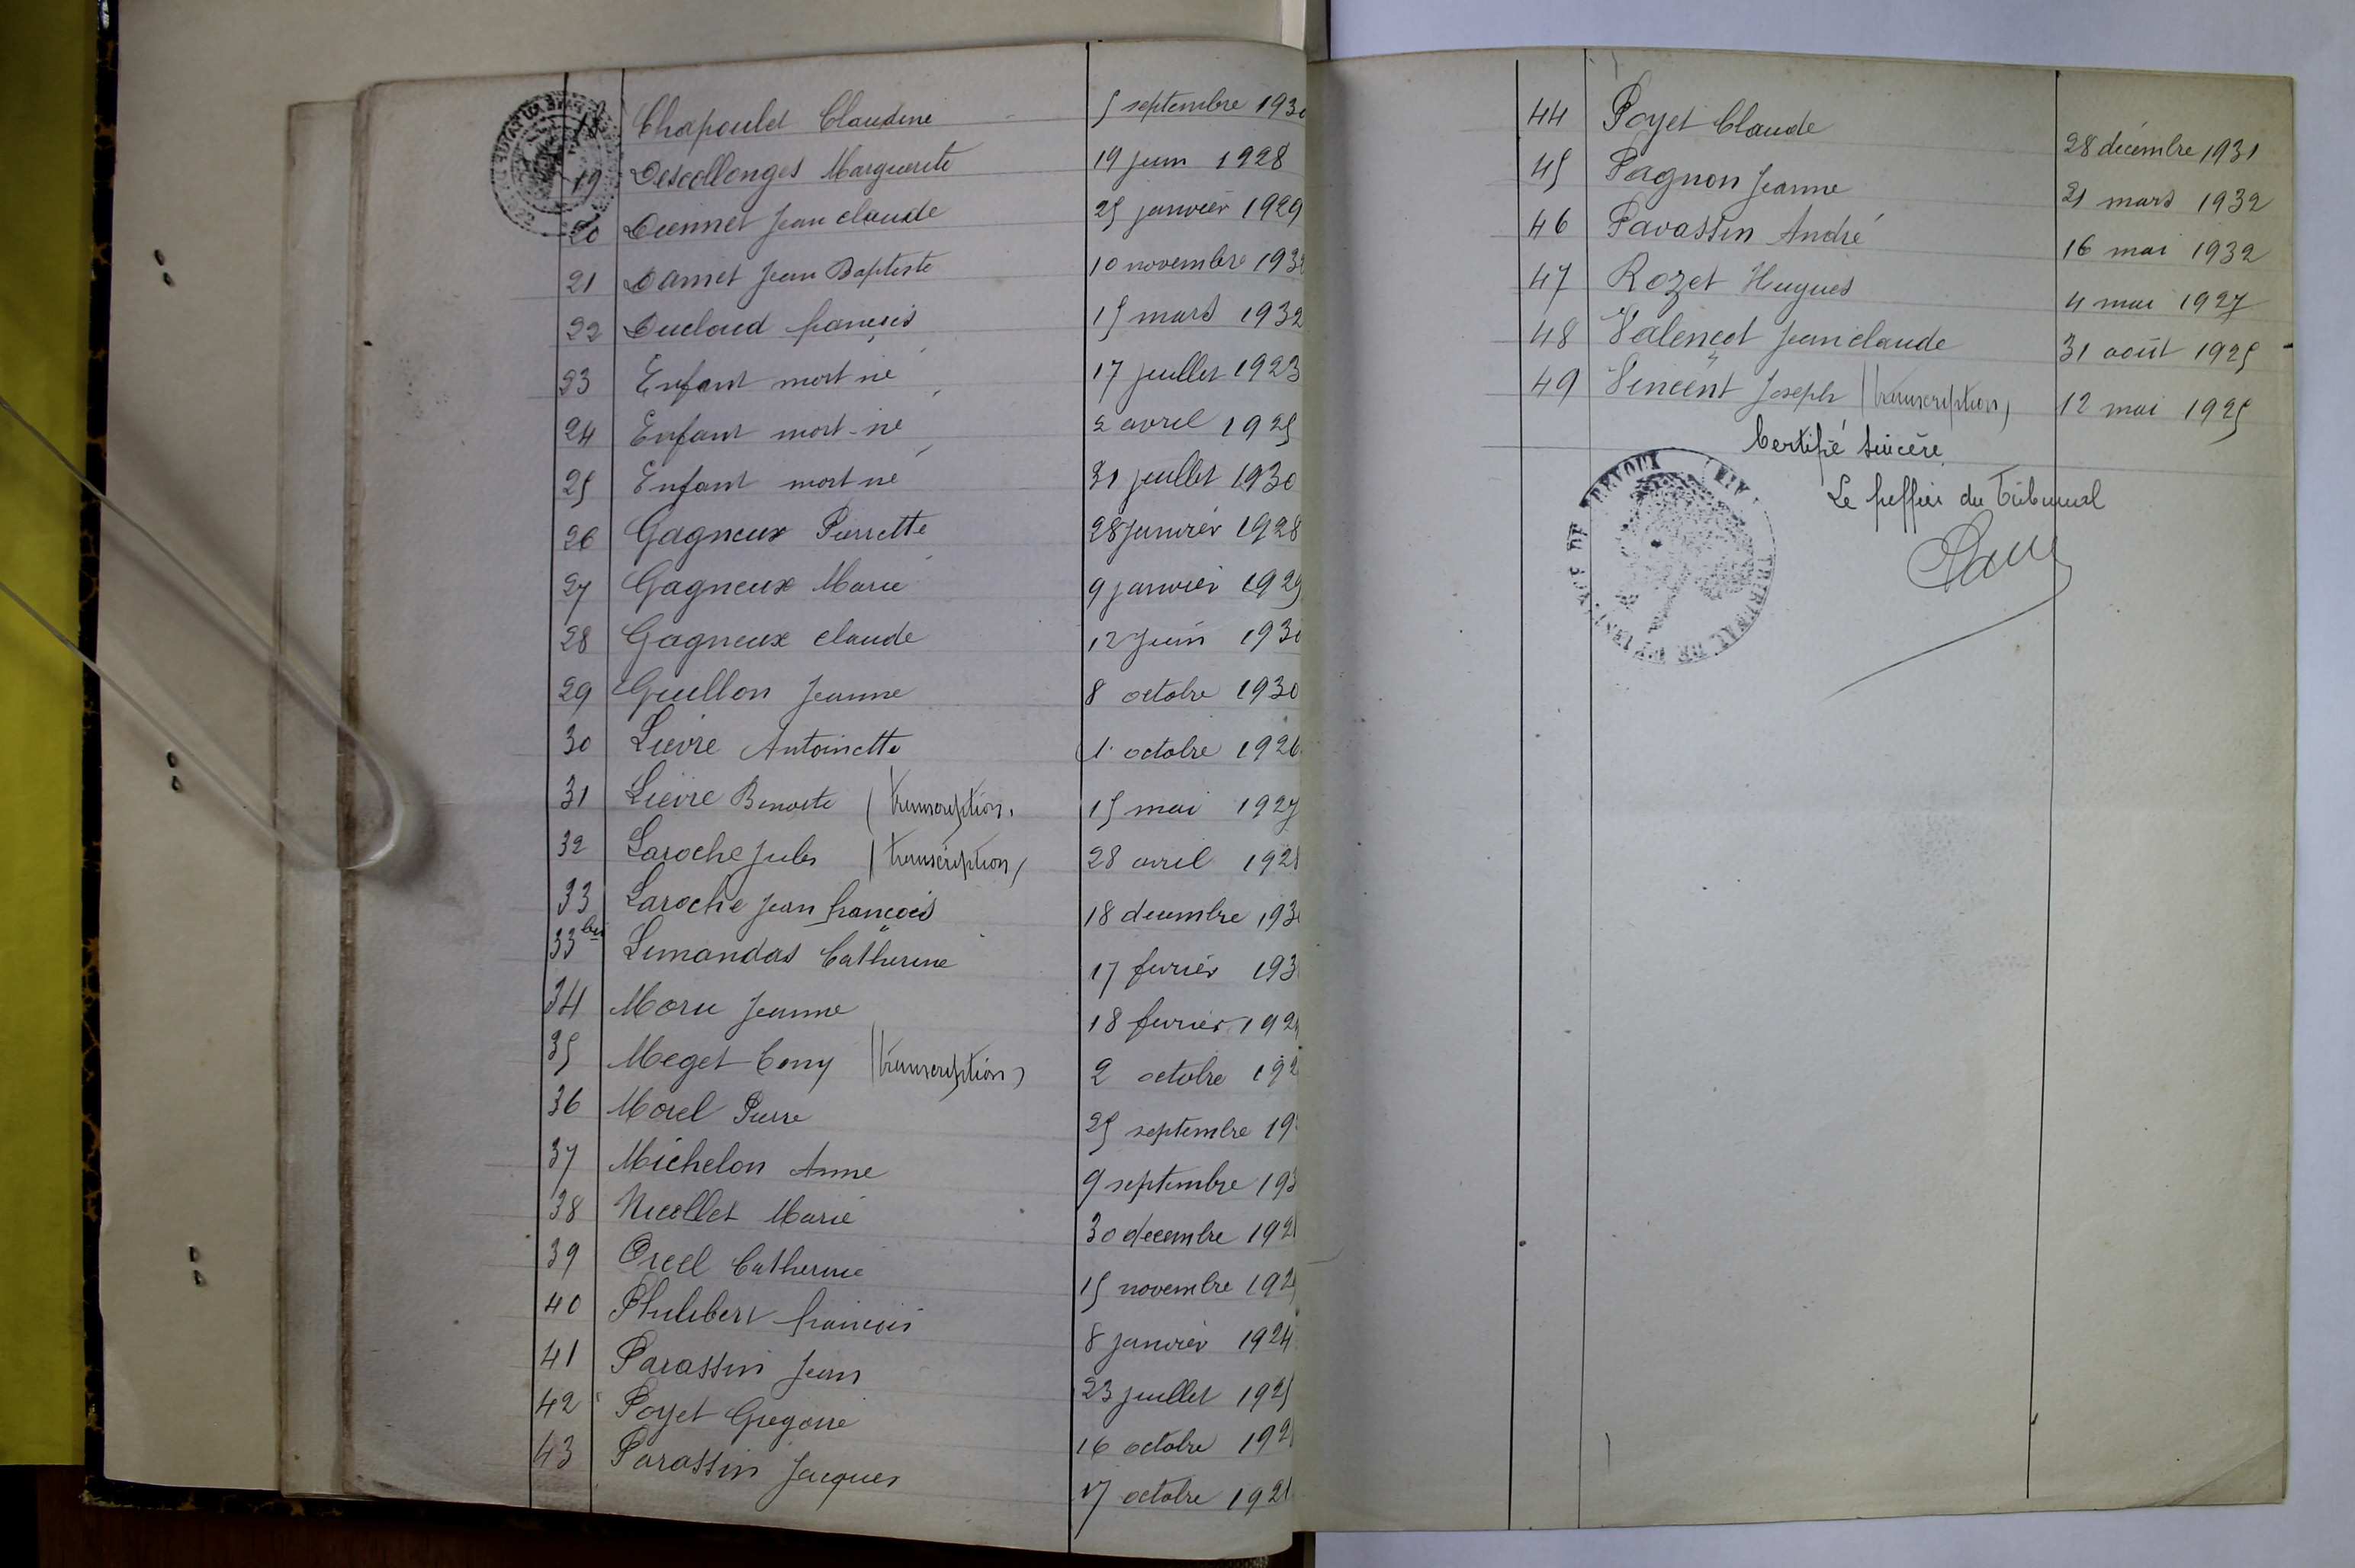 18 Chapoulet Claudine 5 septembre 1930
19 Descollonges Marguerite 19 juin 1928
20 Diennet Jean claude 25 janvier 1929
21 Damet Jean Baptiste 10 novembre
22 Ducloud françois 15 mars 1932
23 Enfant mort né 17 juillet 1923
24 Enfant mort-né 2 avril 1925
25 Enfant mort né 31 juillet 1930
26 Gagneux Pierrette 28 Janvier 1928
27 Gagneux Marie 9 janvier 1929
28 Gagneux claude 12 Juin
29 Guillon Jeanne 8 octobre 1930
30 Lièvre Antoinette 1 octobre 1926
31 Lièvre Benoite (transcription) 15 mai 1927
32 Laroche Jules (transcription) 28 avril
33 Laroche Jean françois 18 decembre
33 bis Limandas Catherine 17 fevrier
34 Morie Jeanne 18 fevrier
35 Meget Cony (transcription) 2 octobre
36 Morel Pierre 25 septembre
37 Michelon Anne 9 septembre
38 Nicollet Marie 30 decembre
39 Orcel Catherine 15 novembre
40 Philibert françois 8 janvier 1924
41 Parassin Jean 23 juillet 1925
42 Poyet Gregoire 16 octobre
43 Parassin Jacques 17 octobre
44 Poyet Claude 28 décembre 1931
45 Pagnon Jeanne 21 mars 1932
46 Pavassin André 16 mai 1932
47 Rozet Hugues 4 mai 1927
48 Valençot Jean claude 31 août 1925
49 Vincent Joseph (transcription) 12 mai 1925
Certifié sincère
Le greffier du Tribunal
TRIBUNAL DE TREVOUX